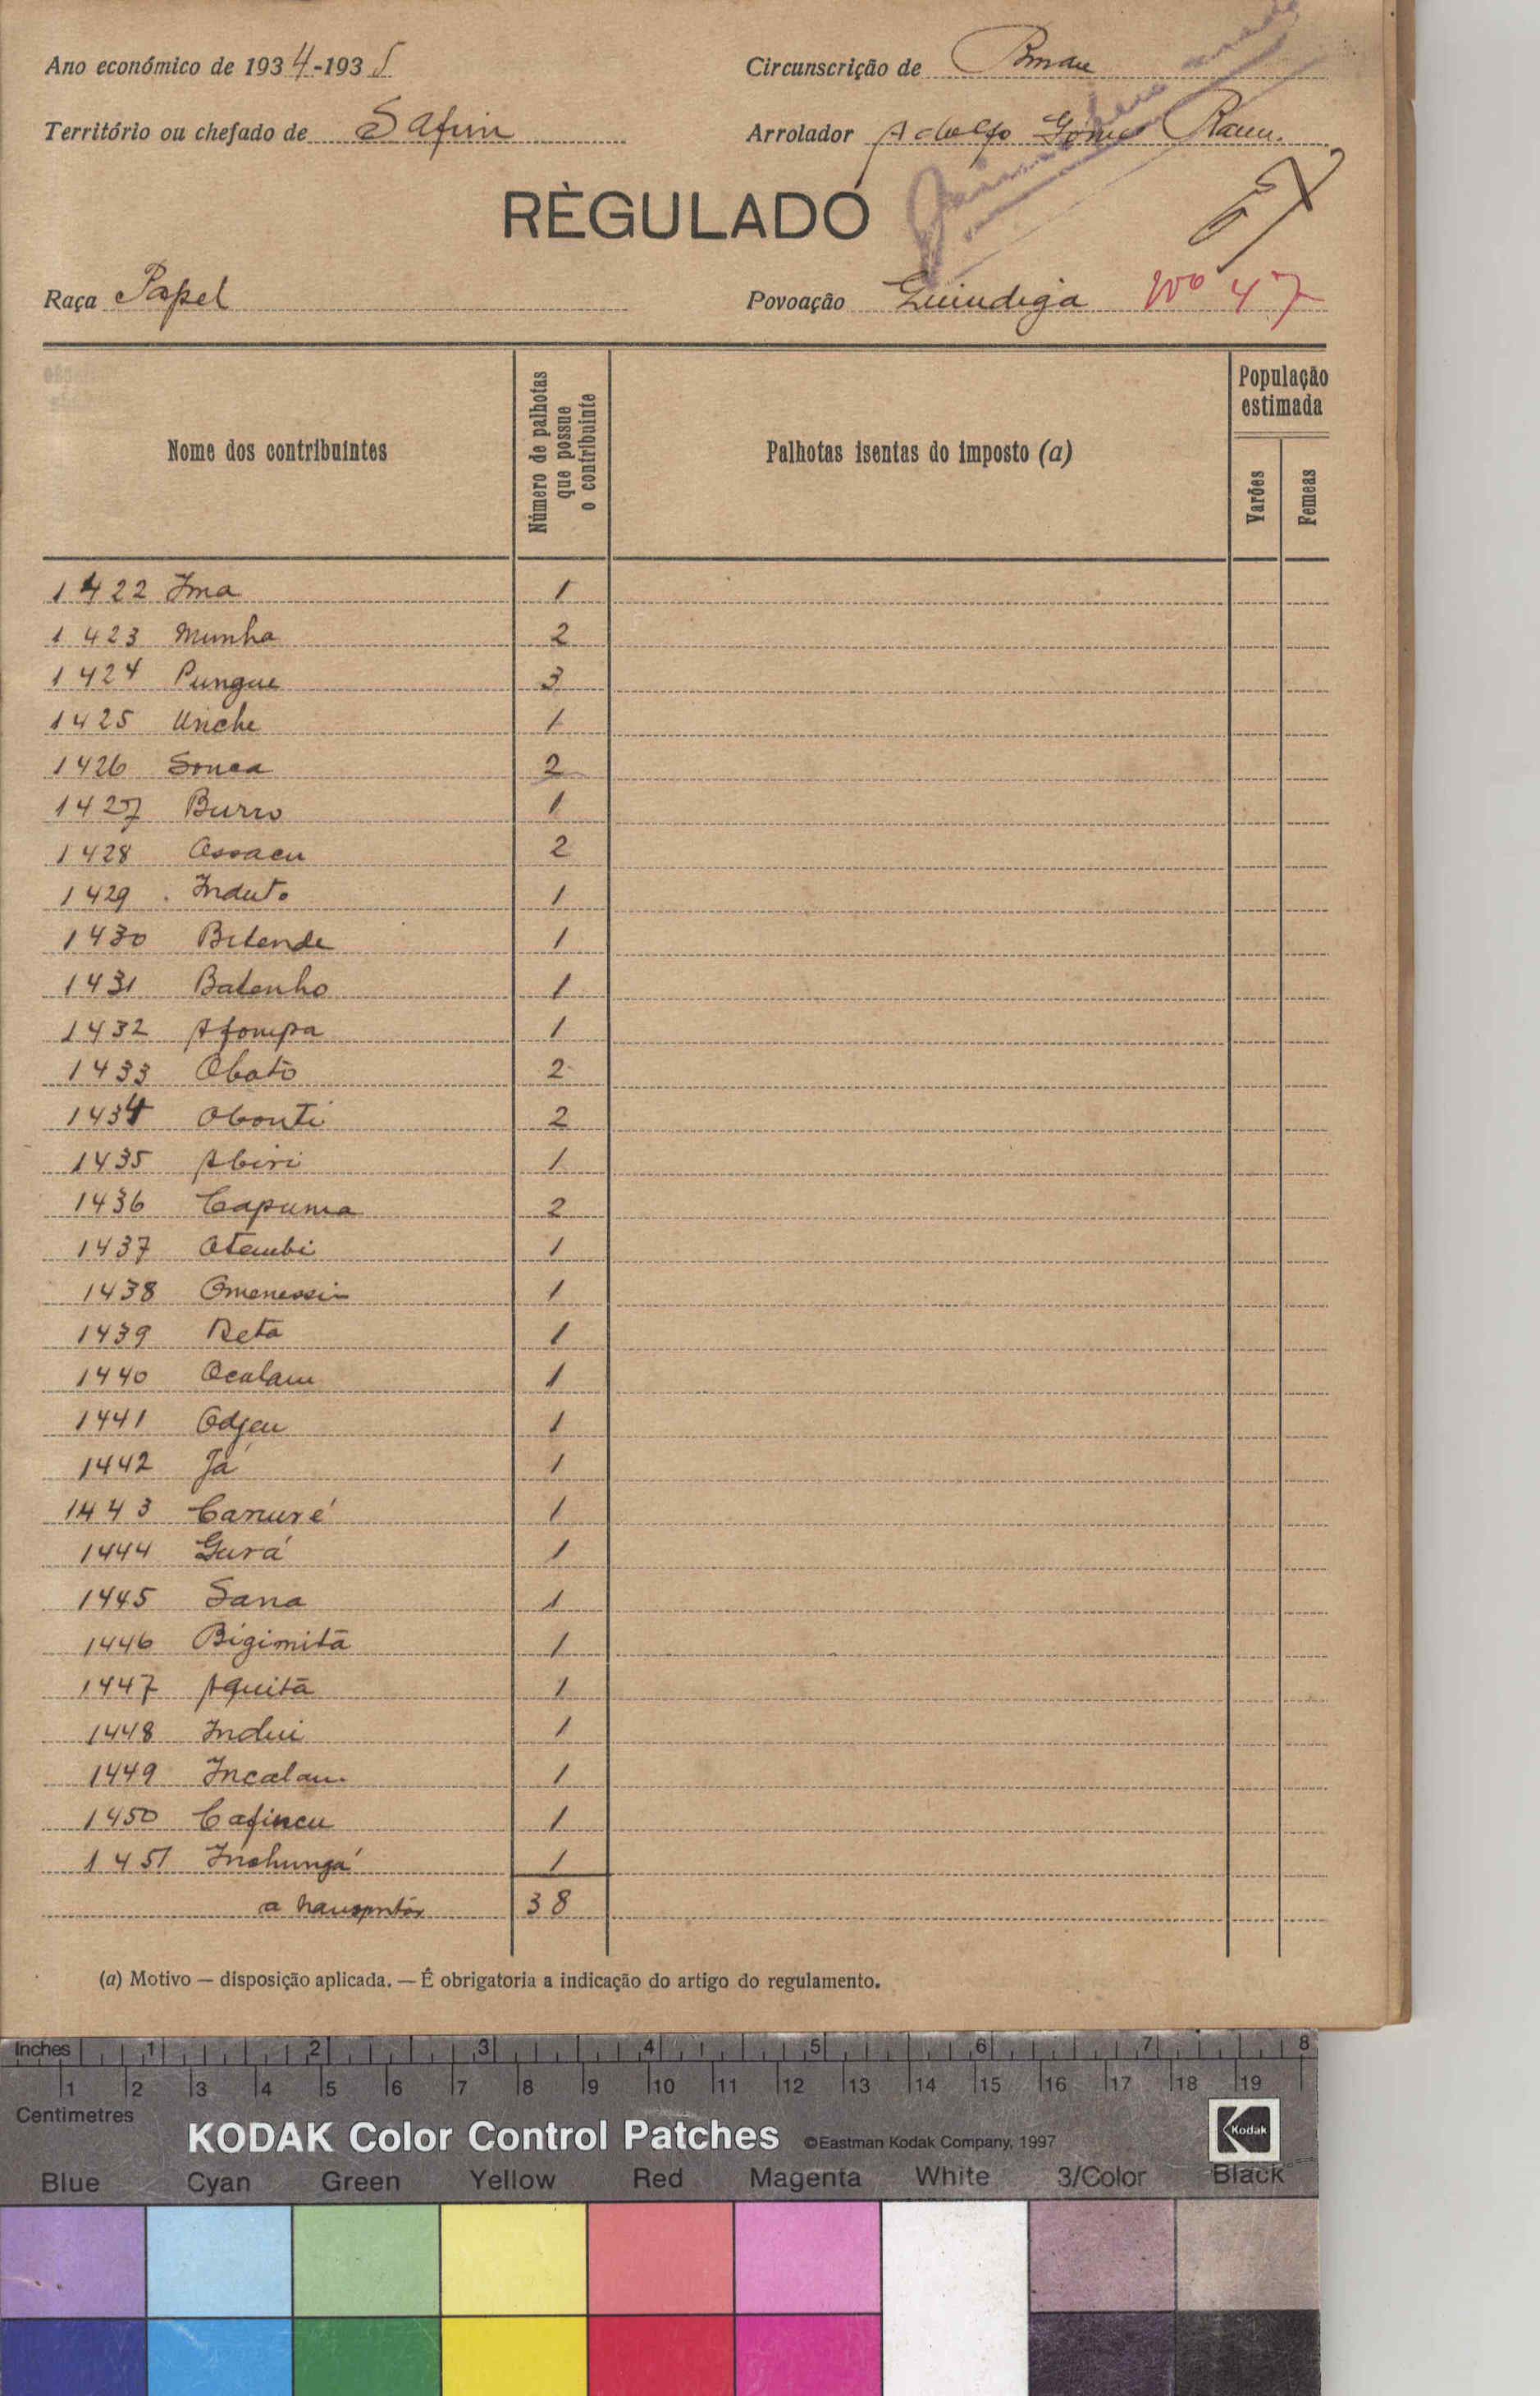 Ano económico de 1934-1935
Circunscrição de
Território ou chefado de Safim
Arrolador Adolfo Gomes
RÈGULADO
Raça Papel
Povoação Quindiga Nº 47
Nome dos contribuintes
Número de palhotas que possue o contribuinte
Palhotas isentas do imposto (a)
População estimada
Varões
Femeas
1422 Ima 1
1423 Munha 2
1424 Pungue 3
1425 Uriche 1
1426 Sonca 2
1427 Burro 1
1428 Ossacu 2
1429 Induto 1
1430 Betende 1
1431 Batenho 1
1432 Afompa 1
1433 Obato 2
1434 Obonti 2
1435 Abiri 1
1436 Capuma 2
1437 Otembi 1
1438 Omenessim 1
1439 Reta 1
1440 Oculam 1
1441 Odjeu 1
1442 Já 1
1443 Canuré 1
1444 Gurá 1
1445 Sana 1
1446 Bigimitã 1
1447 Aquitã 1
1448 Indui 1
1449 Incalam 1
1450 Cafincu 1
1451 Inchungá 1
a transportar 38
(a) Motivo — disposição aplicada. — É obrigatoria a indicação do artigo do regulamento.
Inches 1 2 3 4 5 6 7 8
1 2 3 4 5 6 7 8 9 10 11 12 13 14 15 16 17 18 19
Centimetres
KODAK Color Control Patches ©Eastman Kodak Company, 1997 Kodak
Blue Cyan Green Yellow Red Magenta White 3/Color Black